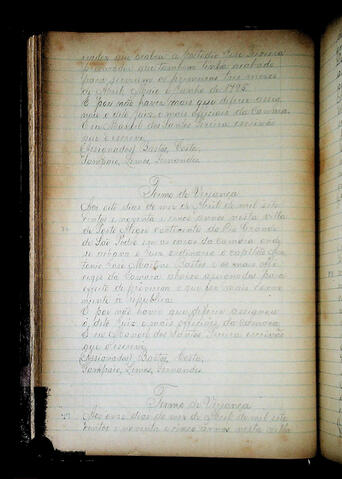 reador que acabou a
Procurador que tambem tinha acabado
para servirem os primeiros tres mezes
de Abril, Maio e Junho de 1795.
E por não haver mais que deferir assig
nou o dito Juiz e mais officiaes da Camara.
E eu Manoel dos Santos Pereira escrivão
que o escrevi.
(Assignados) Bastos, Costa,
Sampaio, Lemos, Fernandes
Termo de Veriança
Aos oito dias do mez de Abril de mil sete
centos e noventa e cinco annos nesta villa
de Porto Alegre continente do Rio Grande
de São Pedro em as cazas da Camara onde
o Juiz ordinario o capitão
José Bastos e os mais offi
ciaes da Camara abaixo assignados para
effeito de o que for mais
a republica.
E por não haver que deferir assignou
o dito Juiz e mais officiaes da Camara
E eu Manoel dos Santos Pereira escrivão
que o escrevi.
(Assignados) Bastos, Costa,
Sampaio, Lemos, Fernandes
Termo de Veriança
Aos onze dias do mez de Abril de mil sete
centos e noventa e cinco annos nesta villa